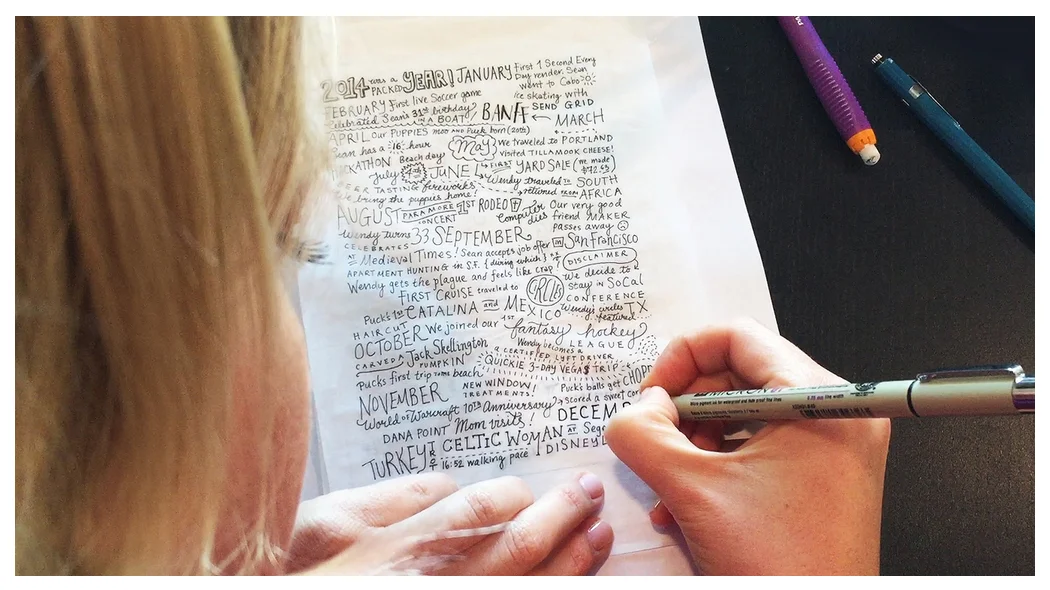 2014 was a PACKED YEAR! JANUARY First 1 Second Every
Day render. Sean
went to Cabo
ice skating with
FEBRUARY First live Soccer game
SEND GRID
celebrated Sean's 31st birthday
IN A BOAT! BANFF ← MARCH
APRIL Our PUPPIES MOO AND Puck born (20th)
May We traveled to PORTLAND
visited TILLAMOOK CHEESE!
Sean has a 16 hour
HACKATHON Beach day
FIRST YARD SALE (we made $72.65)
July 4th JUNE
Wendy traveled TO SOUTH
returned FROM AFRICA
BEER TASTING fireworks
We bring the puppies home!
AUGUST PARAMORE CONCERT 1ST RODEO
computer dies
Our very good
friend MAKER
passes away
Wendy turns 33 SEPTEMBER
CELEBRATES
AT Medieval Times! Sean accepts job offer IN San Francisco
APARTMENT HUNTING in S.F. (during which
DISCLAIMER
Wendy gets the plague and feels like crap)
we decide to
stay in SoCal
FIRST CRUISE traveled to
CIRCLES
CONFERENCE
Puck's 1st CATALINA and MEXICO
Wendy's writes TX
featured
HAIRCUT
OCTOBER We joined our 1ST fantasy hockey
LEAGUE
CARVED A Jack Skellington
PUMPKIN
Wendy becomes a
A CERTIFIED LYFT DRIVER
QUICKIE 3-DAY VEGAS TRIP
Pucks first trip TO THE beach
NEW WINDOW!
TREATMENTS!
Puck's balls get CHOPP
NOVEMBER
World of Warcraft 10th Anniversary
scored a sweet cor
DANA POINT Mom visits!
DECEM
TURKEY TROT CELTIC WOMAN AT Sege
16:52 walking pace DISNEYL
MICRON